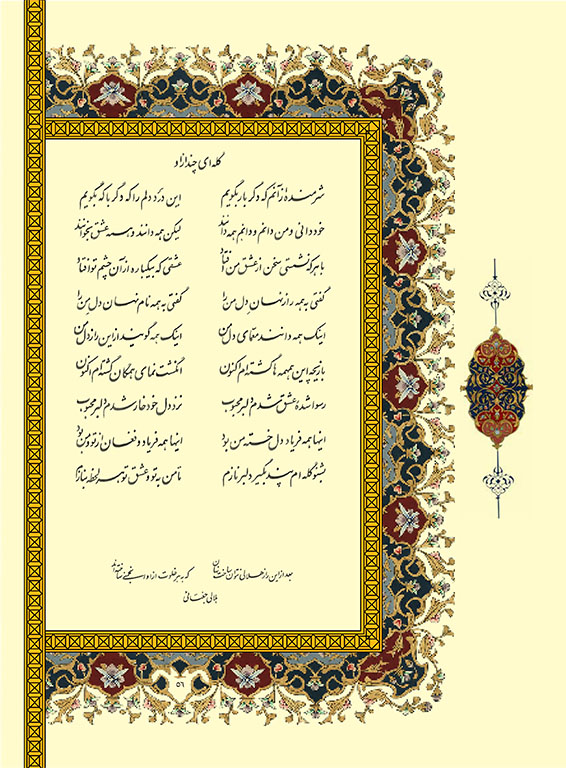 گله ای چند از او
شرمنده از آنم که وگر بار بگویم این درد دلم را که وگر با که بگویم
خود دانی و من دانم و دانم همه دانند لیکن همه دانند و همه عشق بخوانند
با هر که نشستی سخن از عشق من افتاد عشقی که بیکباره از آن چشم تو افتاد
گفتی به همه راز نهان دل من را گفتی به همه نام نهان دل من را
اینک همه دانند معمای دل من اینک همه گویند از این راز دل من
بازیچه این همهمه ها گشته ام اکنون انگشت نمای همگان گشته ام اکنون
رسوا شده عشق شدم دلبر محبوب نزد دل خود خار شدم دلبر محبوب
اینها همه فریاد دل خسته من بود اینها همه فریاد و فغان از تو و من بود
بشنو گله ام پند بگیر دلبر نازم تا من به تو و عشق تو هر لحظه بنازم
بعد از این راز هلالی نتوان ساخت نهان که به هر خلوت از او انجمنی ساخته اند
هلالی جغتائی
۵۶